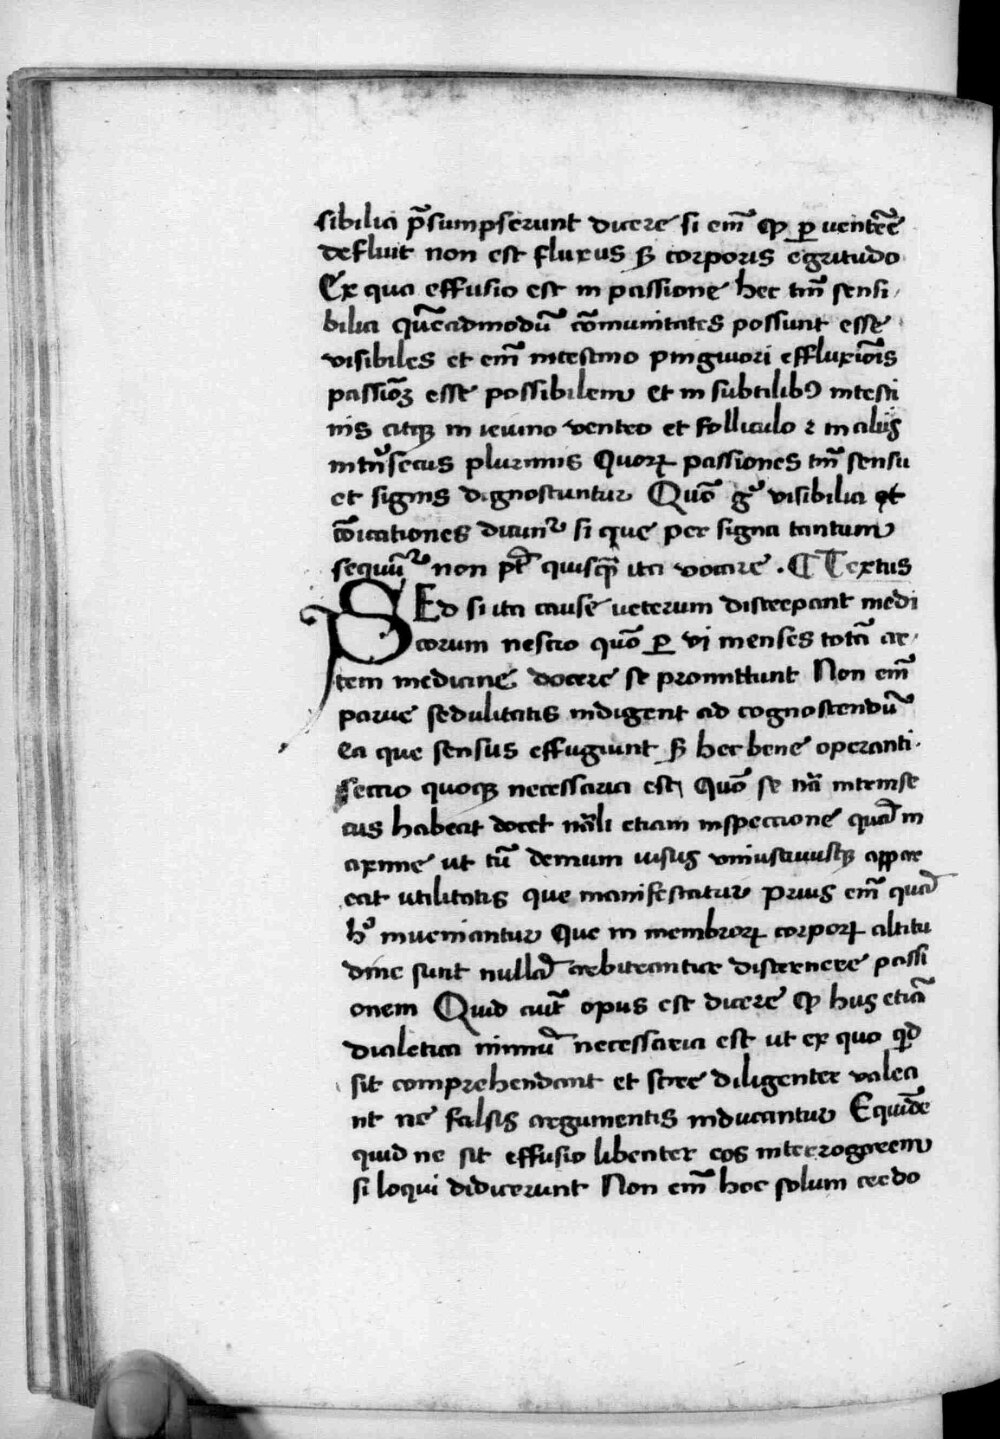 sibilia p̄sumpserunt dicere si em̄ ꝙ ꝑ uentrē
defluit non est fluxus sꝫ corporis egritudo
Ex qua effusio est in passione hec tm̄ sensi
bilia quēadmodū cōmunitates possunt esse
visibiles et em̄ intestino pinguiori effluxiōis
passioꝫ esse possibilem et in subtilibꝰ intesti
nis atqꝫ in ieiuno ventre et folliculo ⁊ in aliis
intrīsecus plurimis Quoꝝ passiones tm̄ sensu
et signis dignoscuntur Quō gͦ visibilia et
cōicationes dicunt᷑ si que per signa tantum
sequūt᷑ non pt̄ quisqꝫ ita vocare . ¶ Textus
SEd si ita cause ueterum discrepant medi
corum nescio quō ꝑ vi menses totā ar
tem medicine docere se promittunt Non em̄
parue sedulitatis indigent ad cognoscendū
ea que sensus effugiunt sꝫ hec bene operanti
sectio quoqꝫ necessaria est Quō se nā intrinse
cus habeat docet nāli etiam inspectione quā m
axime ut tū demum uisus uniuscuiusqꝫ appar
eat utilitatis que manifestatur Prius em̄ quā
hͦ inueniantur Que in membroꝝ corpoꝝ altitu
dine sunt nullā arbitrantur discernere passi
onem Quid aūt opus est dicere ꝙ hus etiā
dialetica nimiū necessaria est ut ex quo qd̄
sit comprehendant et scire diligenter valea
nt ne falsis argumentis inducantur Equidē
quid ne sit effusio libenter eos interrogarem
si loqui didicerunt Non em̄ hoc solum credo